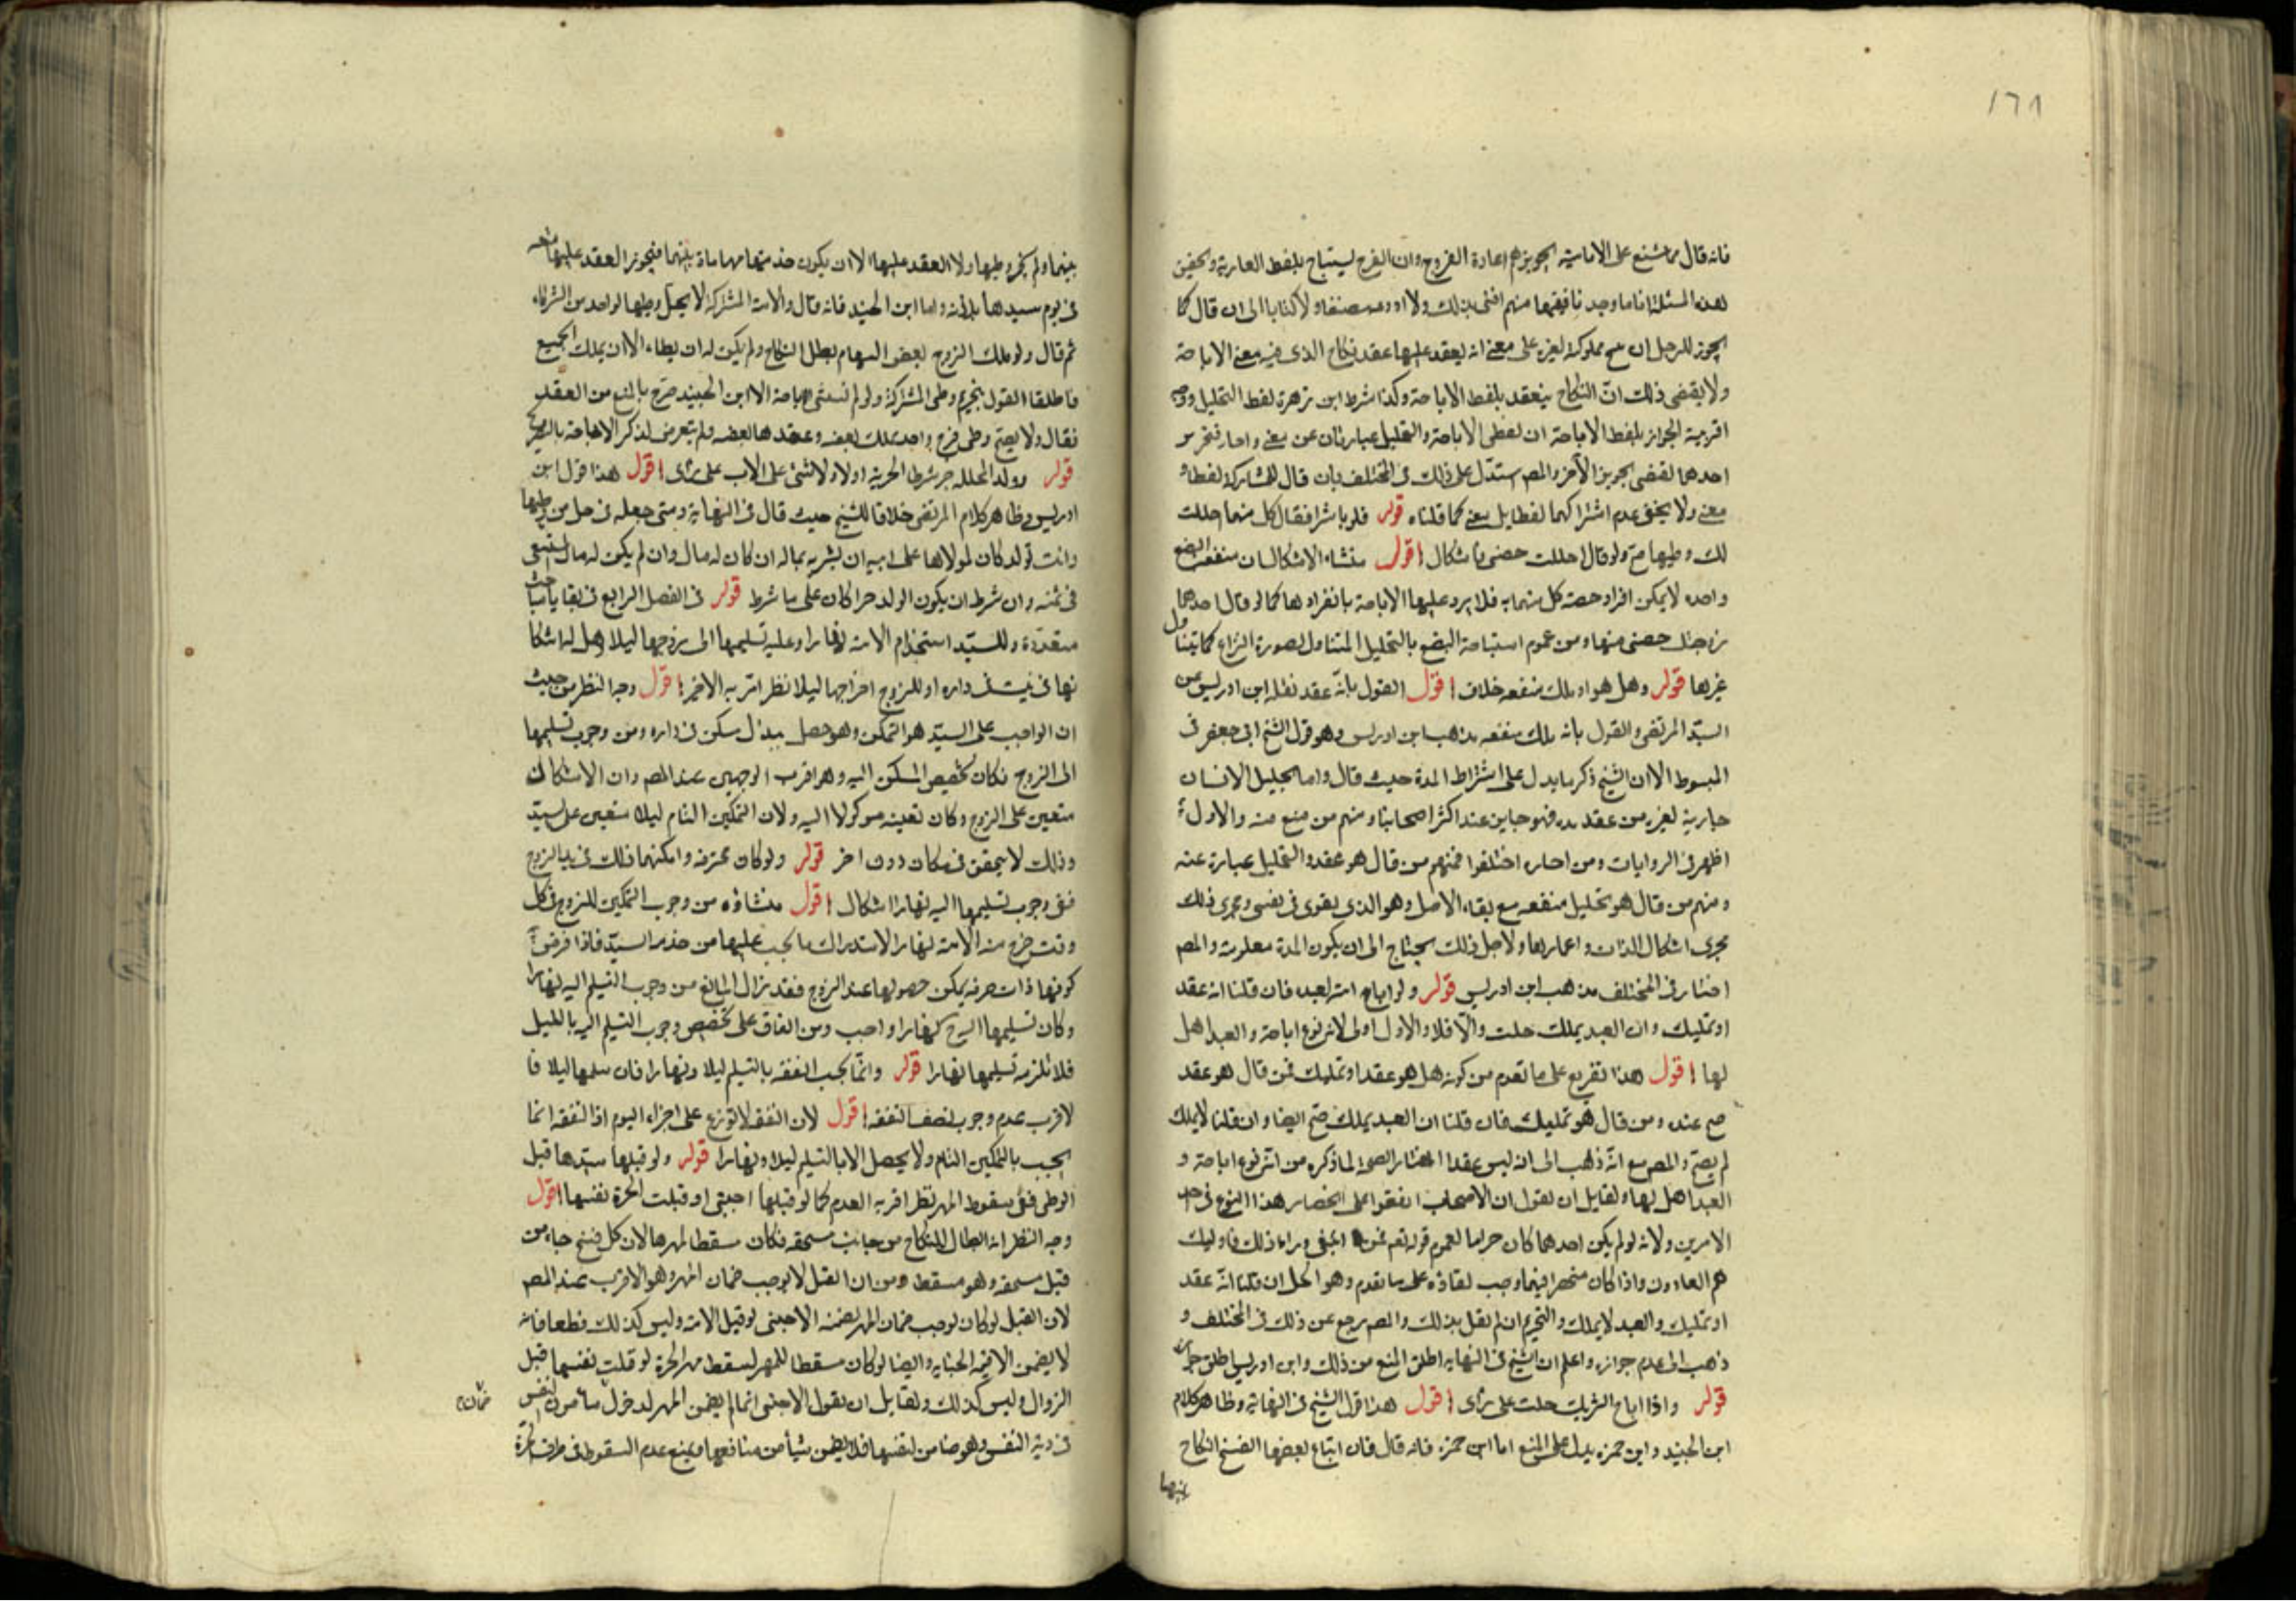 ١٦٨
فانه قال مما شنع على الامامية تجويزهم اعادة الفروج وان الفرج يستباح بلفظ العارية وتحقيق
هذه المسئلة انا ما وجدنا فقيها منهم افتى بذلك ولا اودعه مصنفا ولا كتابا الى ان قال كما
يجوز للرجل ان مملوكة لغيره على معنى انه يعقد عليها عقد نكاح الذى فيه معنى الاباحة
ولا يقتضى ذلك انّ النكاح ينعقد بلفظ الاباحة وكذا شرط ابن زهرة لفظ التحليل ووجه
اقربية الجواز بلفظ الاباحة ان لفظى الاباحة والتحليل عبارتان عن معنى واحد فتجويز
احدهما يقتضى تجويز الآخر والمص استدلّ على ذلك فى المختلف بان قال للمشاركة لفظا
معنى ولا يخفى عدم اشتراكهما لفظا بل معنى كما قلناه قوله فلو باشرا فقال كل منهما حللت
لك وطيها صح ولو قال احللت حصتى فاشكال اقول منشاء الاشكال ان منفعة البضع
واحدة لا يمكن افراد حصته كل منهما به فلا يرد عليها الاباحة بانفرادها كما لو قال احدهما
زوجتك حصتى منها ومن عموم استباحة البضع بالتحليل المتناول لصورة النزاع كما يتناول
غيرها قوله وهل هو او ملك منفعه خلاف اقول القول بانّه عقد نقله ابن ادريس عن
السيّد المرتضى والقول بانه ملك منفعه مذهب ابن ادريس وهو قول الشيخ ابى جعفر فى
المبسوط الا ان الشيخ ذكر ما يدل على اشتراط المدة حيث قال واما تحليل الانسان
جاريته لغيره من عقد مدة فهو جايز عند اكثر اصحابنا ومنهم من منع منه والاول
اظهر فى الروايات ومن اجازه اختلفوا فمنهم من قال هو عقد والتحليل عبارة عنه
ومنهم من قال هو تحليل منفعه مع بقاء الاصل وهو الذى يقوى فى نفسى وجرى ذلك
مجرى اسكان الدار واعمارها ولاجل ذلك يحتاج الى ان يكون المدة معلومة والمص
اختار فى المختلف مذهب ابن ادريس قوله ولو اباح امته لعبده فان قلنا انه عقد
او تمليك وان العبد يملك حلت والّا فلا والاول اولى لانه نوع اباحة والعبد اهل
لها اقول هذا تفريع على ما تقدم من كونه هل هو عقد او تمليك فمن قال هو عقد
صح عنده ومن قال هو تمليك فان قلنا ان العبد يملك صحّ ايضا وان قلنا لا يملك
لم يصحّ والمص مع انّه ذهب الى انه ليس عقدا اختار الصحة لما ذكره من انّه نوع اباحة و
العبد اهل لها ولقايل ان يقول ان الاصحاب اتفقوا على انحصار هذا النوع فى احد
الامرين ولانه لو لم يكن احدهما كان حراما لعموم قوله تعم فمن ابتغى وراء ذلك فاوليك
هم العادون واذا كان منحصرا فيهما وجب لقاذه على ما تقدم وهو الحل ان قلنا انّه عقد
او تمليك والعبد لا يملك والتحريم ان لم نقل بذلك والمص رجع عن ذلك فى المختلف و
ذهب الى عدم جوازه واعلم ان الشيخ فى النهاية اطلق المنع من ذلك وابن ادريس اطلق جوازه
قوله واذا اباح الشريك حلت على راى اقول هذا قول الشيخ فى النهاية وظاهر كلام
ابن الجنيد وابن حمزه يدل على المنع اما ابن حمزه فانه قال فان ابتاع بعضها انفسخ النكاح
بينهما
بينهما ولم يجز وطيها ولا العقد عليها الا ان يكون خدمتها مهاياة بينهما فيجوز العقد عليها متعه
فى يوم سيدها باذنه واما ابن الجنيد فانه قال والامة المشتركة لا يحلّ وطيها لواحد من الشركاء
ثم قال ولو ملك الزوج بعض السهام بطل النكاح ولم يكن له ان يطاء الا ان يملك الجميع
فاطلقا القول بتحريم وطى المشتركة ولو لم نستثنى الاباحة الا ابن الجنيد صرّح بالمنع من العقد
فقال ولا يصحّ وطى فرج واحد بملك بعضه وعقد هالعضه ولم يتعرض لذكر الاباحة بالتصريح
قوله وولد المحلله حر شرط الحرية اولا ولا شئ على الاب على راى اقول هذا قول ابن
ادريس وظاهر كلام المرتضى خلافا للشيخ حيث قال فى النهاية ومتى جعله فى حل من وطيها
واتت بولد كان لمولاها على ابيه ان يشتريه بماله ان كان له مال وان لم يكن له مال استسعى
فى ثمنه وان شرط ان يكون الولد حرا كان على ما شرط قوله فى الفصل الرابع فى بقايا مباحث
متعدّدة وللسيّد استخدام الامة نهارا وعليه تسليمها الى زوجها ليلا وهل له اسكا
نها فى بيت فى داره او للزوج اخراجها ليلا نظر اقربه الاخير اقول وجه النظر من حيث
ان الواجب على السيّد هو التمكن وهو حصل ببذل سكن فى داره ومن وجوب تسليمها
الى الزوج فكان تخصيص المسكن اليه وهو اقرب الوجهين عند المص وان الاسكان
متعين على الزوج وكان تعينه موكولا اليه ولان التمكين التام ليلا متعين على السيّد
وذلك لا يتحقق فى مكان دون اخر قوله ولو كان محترفه وامكنهما ذلك فى يد الزوج
ففى وجوب تسليمها اليه نهارا اشكال اقول منشاؤه من وجوب التمكين للزوج فى كل
وقت خرج منه الامة نهارا لاستدراك ما يجب عليها من خدمه السيّد فاذا فرض
كونها ذات حرفه يمكن حصولها عند الزوج فقد زال المانع من وجوب التسليم اليه نهارا
وكان تسليمها اليه نهارا واجب ومن اتفاق على تخصيص وجوب التسليم اليه بالليل
فلا تلزمه تسليمها نهارا قوله وانّما يجب النفقه بالتسليم ليلا ونهارا فان سلمها ليلا فا
لاقرب عدم وجوب نصف النفقه اقول لان النفقه لا توزع على اجزاء اليوم اذ النفقه انما
يجب بالتمكين التام ولا يحصل الا بالتسليم ليلا ونهارا قوله ولو قتلها سيّدها قبل
الوطى ففى سقوط المهر نظر اقربه العدم كما لو قتلها اجنبى او قتلت الحرة نفسها اقول
وجه النظر انه ابطال للنكاح من جانب مستحقه فكان مسقطا لمهرها لان كل فسخ جاء من
قبل مستحقه وهو مسقط ومن ان القتل لا يوجب ضمان المهر وهو الاقرب عند المص
لان القتل لو كان يوجب ضمان المهر لضمنه الاجنبى لو قتل الامة وليس كذلك قطعا فانه
لا يضمن الا قيمه الجنايه وايضا لو كان مسقطا للمهر لسقط مهر الحرة لو قتلت نفسها قبل
الزوال وليس كذلك ولقايل ان يقول الاجنبى انما لم يضمن المهر لدخول ضمان
فى دية النفس وهو ضامن لنفسها فلا يضمن شيأ من منافعها ويمنع عدم السقوط فى طرف الحرة